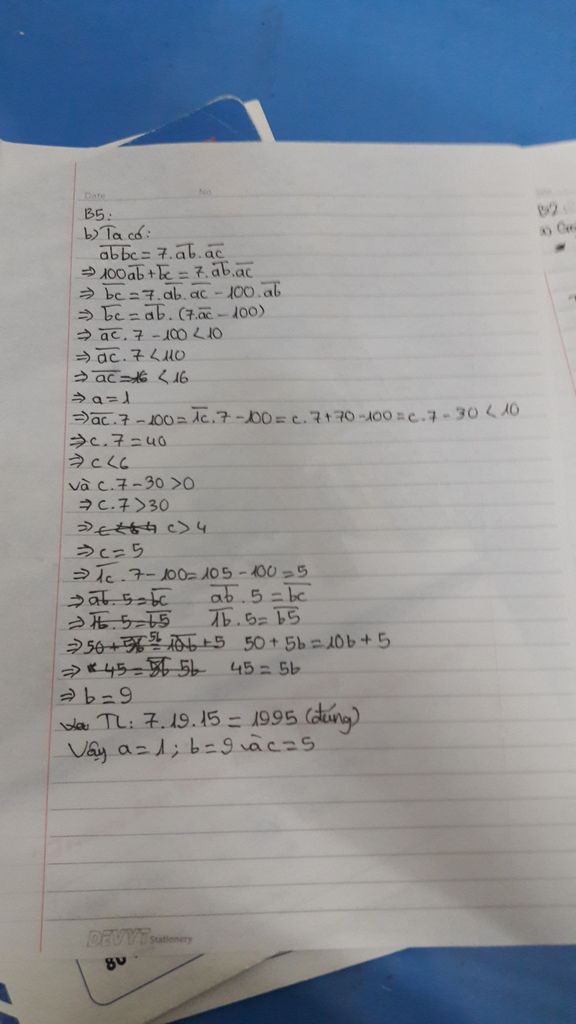 Date No
B5:
b) Ta có:
abbc = 7.ab.ac
⇒ 100ab + bc = 7.ab.ac
⇒ bc = 7.ab.ac - 100.ab
⇒ bc = ab.(7.ac - 100)
⇒ ac.7 - 100 < 10
⇒ ac.7 < 110
⇒ ac = 16 < 16
⇒ a = 1
⇒ ac.7 - 100 = 1c.7 - 100 = c.7 + 70 - 100 = c.7 - 30 < 10
⇒ c.7 = 40
⇒ c < 6
và c.7 - 30 > 0
⇒ c.7 > 30
⇒ c > 4
⇒ c = 5
⇒ 1c.7 - 100 = 105 - 100 = 5
⇒ ab.5 = bc ab.5 = bc
⇒ 1b.5 = b5 1b.5 = b5
⇒ 50 + 5b = 10b + 5 50 + 5b = 10b + 5
⇒ 45 = 5b 45 = 5b
⇒ b = 9
TL: 7.19.15 = 1995 (đúng)
Vậy a = 1; b = 9 và c = 5
DEVYT Stationery
80
B2
a)